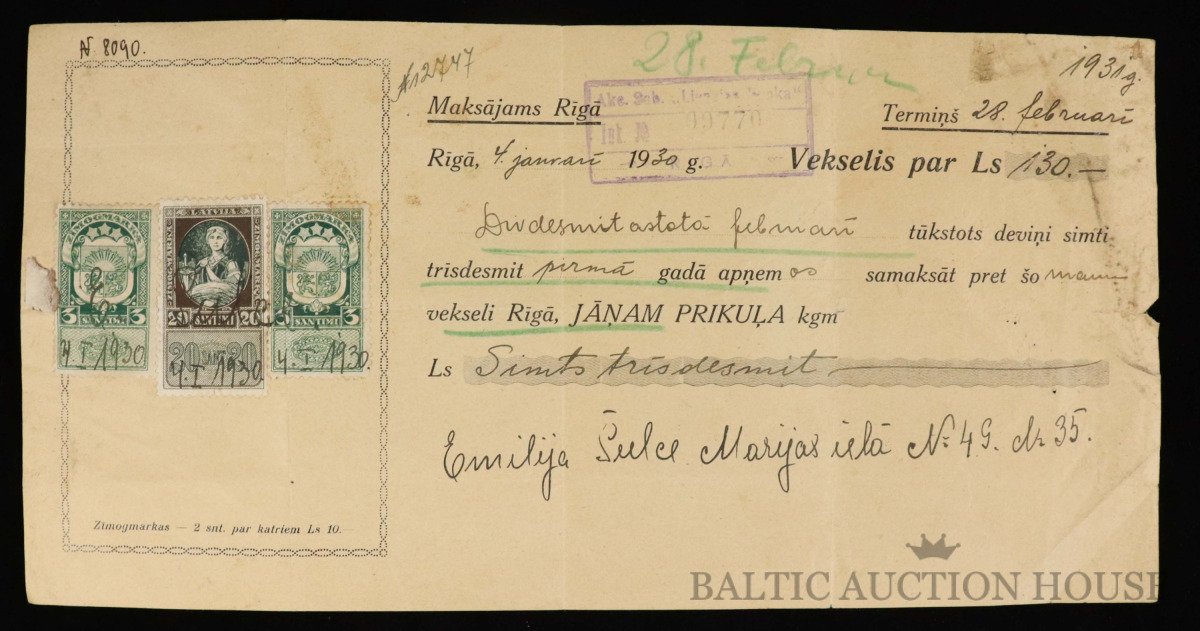 № 8090.
№12747
28. Februar
1931 g.
Maksājams Rīgā
Akc. Sab.
Int. № 99770
RĪGĀ
Termiņš 28. februarī
Rīgā, 4. janvarī 1930 g.
Vekselis par Ls 130.—
Divdesmitastotā februarī tūkstots deviņi simti
trīsdesmit pirmā gadā apņemos samaksāt pret šo manu
vekseli Rīgā, JĀŅAM PRIKUĻA kgm
Ls Simts trīsdesmit
Emilija Šulce Marijas ielā № 49. dz 35.
ZĪMOGMARKA
3 3
SANTIMI
4. I 1930
LATVIJA
ZĪMOGMARKA ZĪMOGMARKA
20 SANTIMI 20
20 SANT. 20
4. I 1930
ZĪMOGMARKA
3 3
SANTIMI
4. I 1930.
Zīmogmarkas — 2 snt. par katriem Ls 10.—
BALTIC AUCTION HOUSE